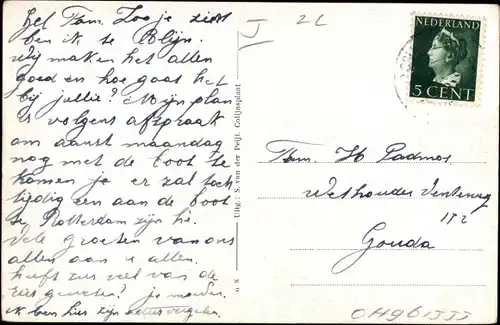 Gel. Fam. Zoo je ziet
ben ik te Colijn.
Wij maken het allen
goed en hoe gaat het
bij jullie? Mijn plan
is volgens afspraak
om aanst maandag
nog met de boot te
komen je er zal toch
tijdig een aan de boot
te Rotterdam zijn hè.
Vele groeten van ons
allen aan u allen.
heeft zus veel van de
reis genoten? je moeder.
ik ben hier zijn vergeten.
Uitg.: S. van der Peijl, Colijnsplaat
n 8
J
2L
NEDERLAND
5 CENT
Fam. H. Padmos
Wethouder Venteweg
112
Gouda
OH961JJJ